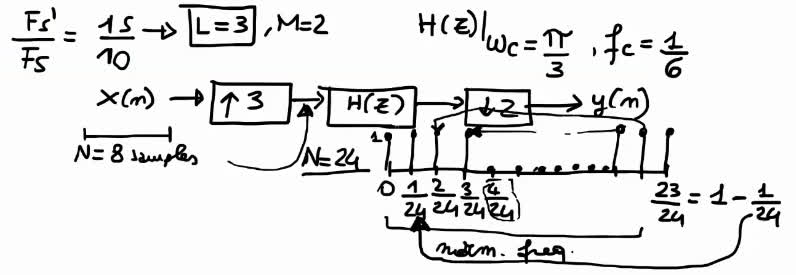 Fs'/Fs = 15/10 → L=3, M=2
H(z)|ωc = π/3, fc = 1/6
x(n) → ↑3 → H(z) → ↓2 → y(n)
N=8 samples
N=24
1
0 1/24 2/24 3/24 4/24 23/24 = 1 - 1/24
norm. freq.